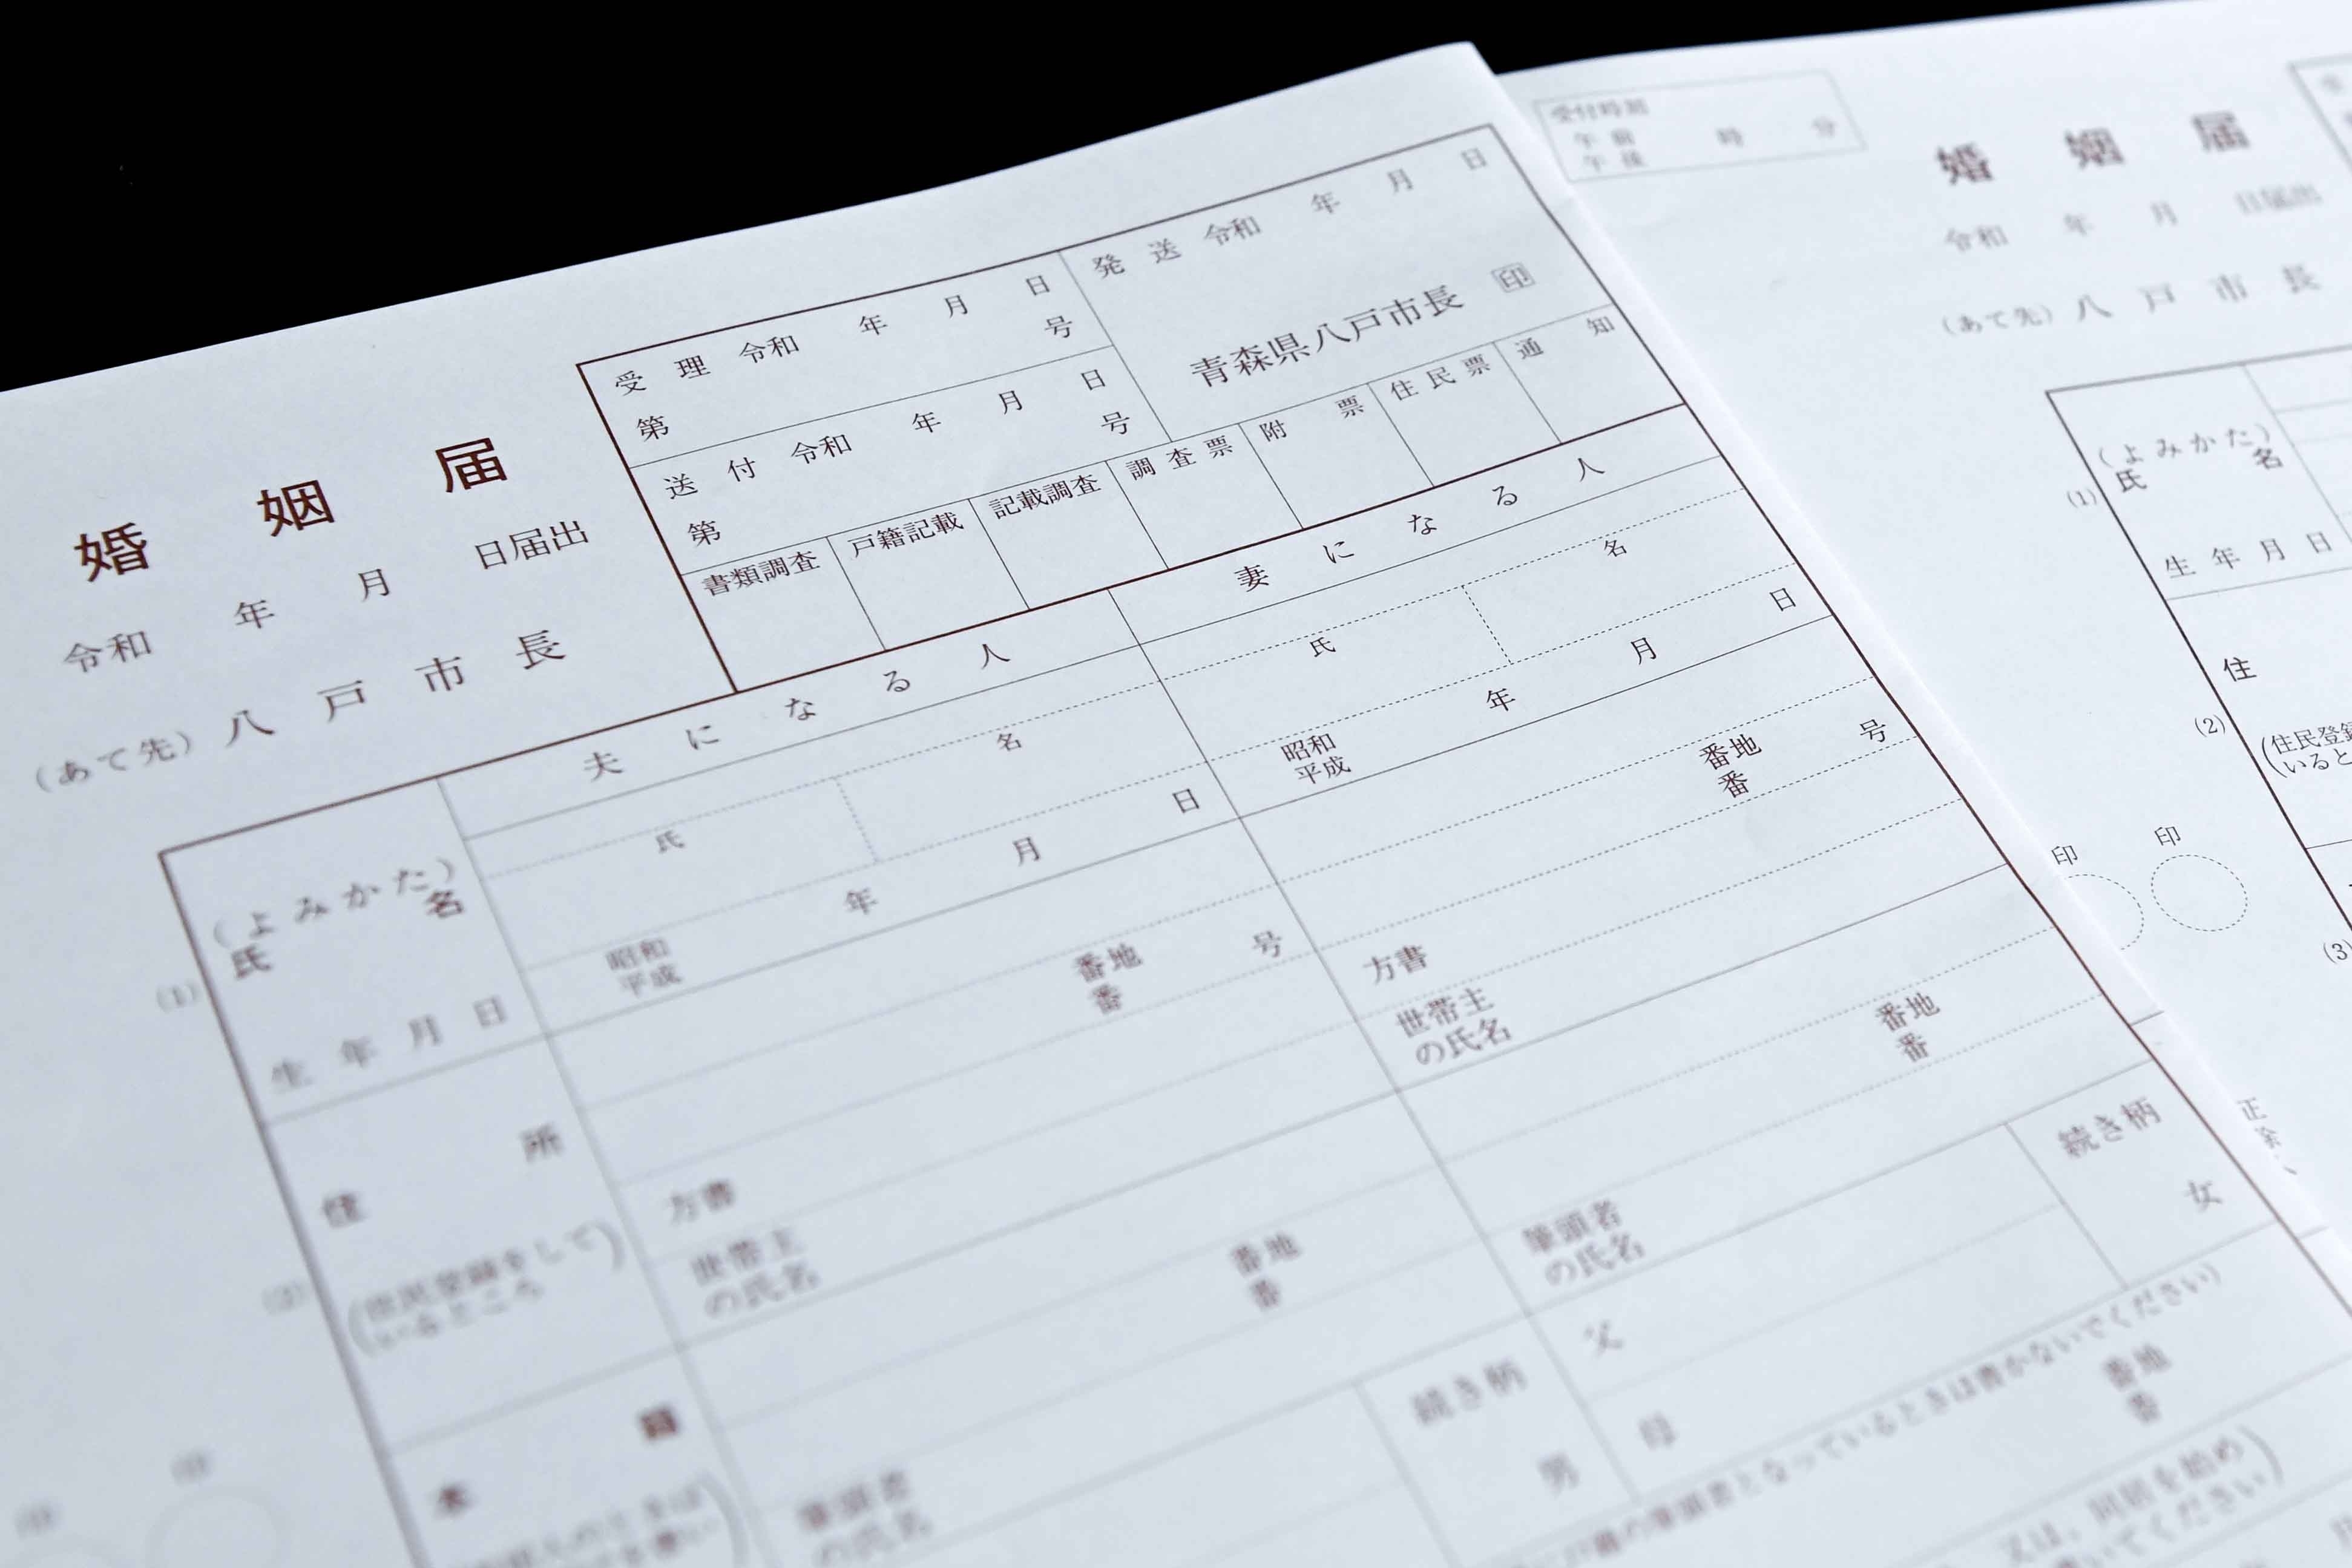 婚姻届
令和 年 月 日届出
(あて先)八戸市長
受理 令和 年 月 日
第 号
送付 令和 年 月 日
第 号
発送 令和 年 月 日
青森県八戸市長 印
書類調査 戸籍記載 記載調査 調査票 附票 住民票 通知
夫になる人 妻になる人
(よみかた)
氏名
氏 名 氏 名
(1)
生年月日
昭和 年 月 日 昭和 年 月 日
平成 平成
住所
番地 号 番地 号
番 番
(2)
(住民登録をして
いるところ)
方書 方書
世帯主 世帯主
の氏名 の氏名
本籍
番地 番地
番 番
筆頭者 筆頭者
の氏名 の氏名
父
母
続き柄 続き柄
男 女
の筆頭者となっているときは書かないでください)
番地
番
又は、同居を始め
いてください)
受付時刻
午前 時 分
午後
婚姻届
令和 年 月 日届出
(あて先)八戸市長
(よみかた)
氏名
(1)
生年月日
住
(2)
(住民登録
いると
印 印
(3)
正